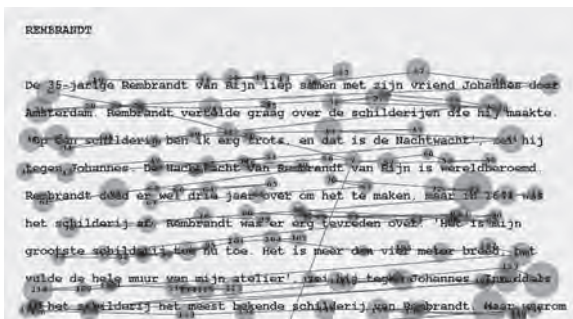 REMBRANDT
De 35-jarige Rembrandt van Rijn liep samen met zijn vriend Johannes door
Amsterdam. Rembrandt vertelde graag over de schilderijen die hij maakte.
'Op één schilderij ben ik erg trots, en dat is de Nachtwacht', zei hij
tegen Johannes. De Nachtwacht van Rembrandt van Rijn is wereldberoemd.
Rembrandt deed er wel drie jaar over om het te maken, maar in 1641 was
het schilderij af. Rembrandt was er erg tevreden over. 'Het is mijn
grootste schilderij tot nu toe. Het is meer dan vier meter breed, het
vulde de hele muur van mijn atelier', zei hij tegen Johannes. Inmiddels
is het schilderij het meest bekende schilderij van Rembrandt. Maar waarom